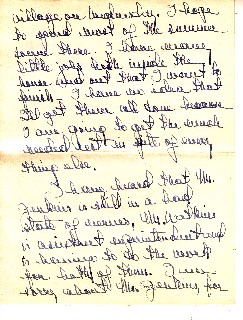 village on Wednesday. I hope
to spend most of the summer
down there. I have some
little jobs both inside the
house and out that I want to
finish. I have no idea that
I'll get them all done because
I am going to get the much
needed rest in spite of every
thing else.
I have heard that Mr.
Jenkins is still in a bad
state of nerves. Mr. Watkins
is assistant superintendent and
is having to do the work
for both of them. I am
sorry about Mr. Jenkins for